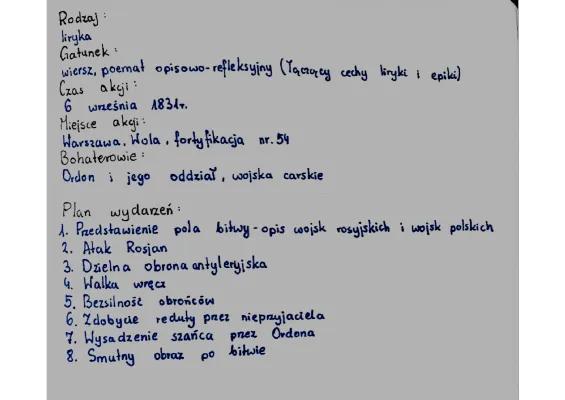 Rodzaj :
liryka
Gatunek :
wiersz, poemat opisowo-refleksyjny (łączący cechy liryki i epiki)
Czas akcji :
6 września 1831r.
Miejsce akcji :
Warszawa, Wola, fortyfikacja nr. 54
Bohaterowie :
Ordon i jego oddział, wojska carskie
Plan wydarzeń :
1. Przedstawienie pola bitwy - opis wojsk rosyjskich i wojsk polskich
2. Atak Rosjan
3. Dzielna obrona artyleryjska
4. Walka wręcz
5. Bezsilność obrońców
6. Zdobycie reduty przez nieprzyjaciela
7. Wysadzenie szańca przez Ordona
8. Smutny obraz po bitwie